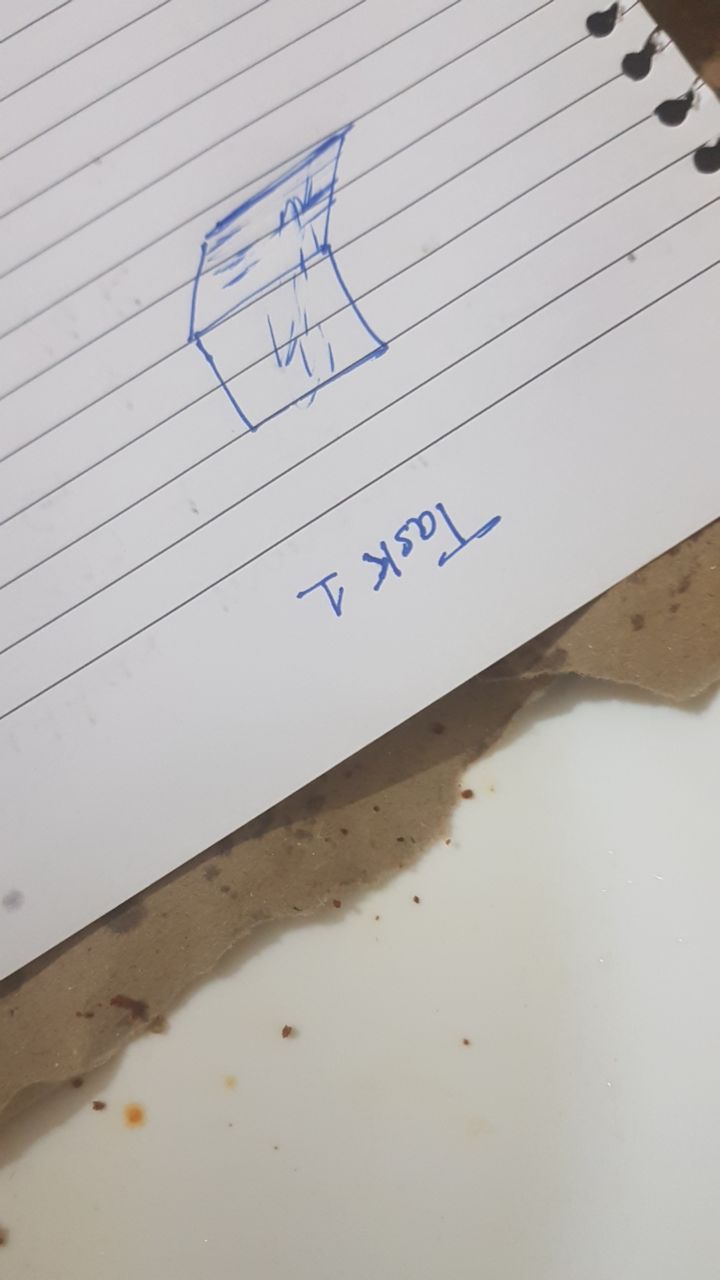 Task 1